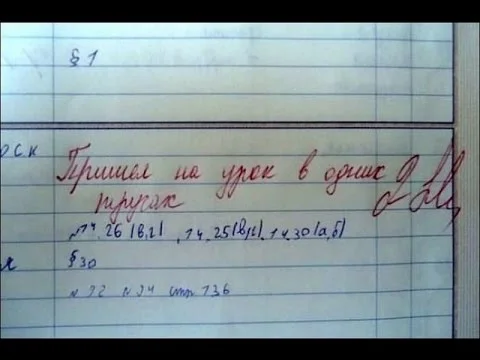 § 1
оск Пришел на урок в одних 2
трусах
№14.26(в,г), 14.25(в,г), 14.30(а,б)
§ 30
№92 №94 стр 136